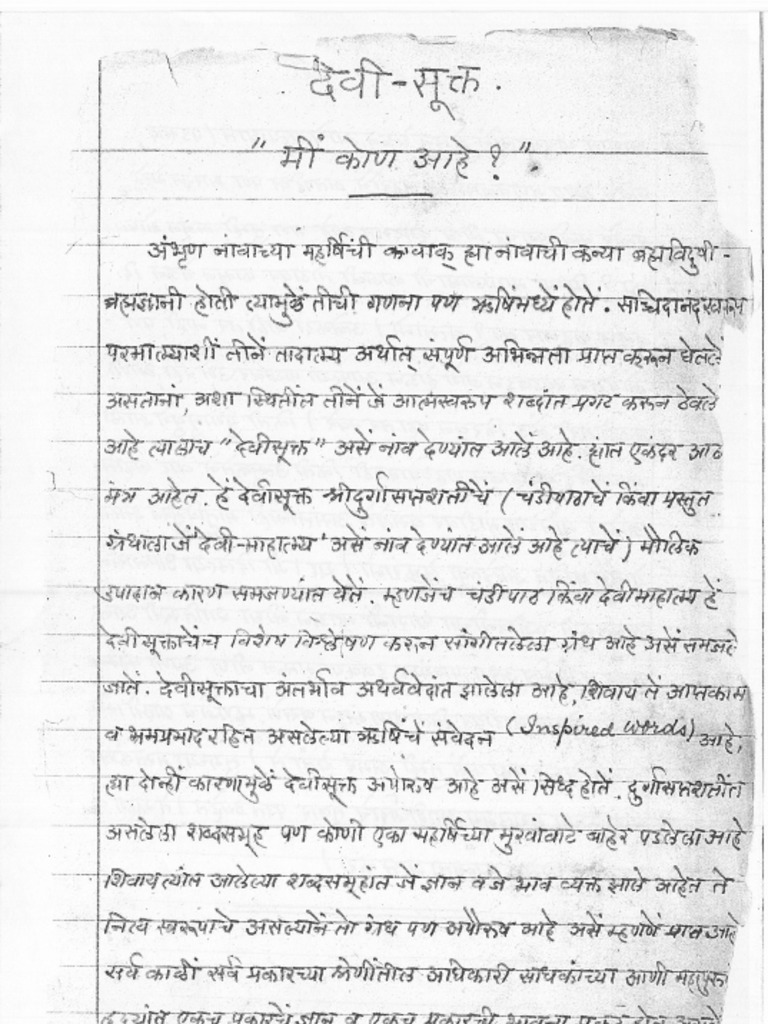 देवी-सूक्त.
"मीं कोण आहे?".
अंभृण नावाच्या महर्षिची कन्वाक ह्या नांवाची कन्या ब्रह्मविदुषी -
ब्रह्मज्ञानी होती त्यामुळें तीची गणना पण ऋषिमध्यें होते. सच्चिदानंदस्वरूप
परमात्म्याशीं तीनें तादात्म्य अर्थात् संपूर्ण अभिन्नता प्राप्त करून घेतलें
असतांनां, अशा स्थितींत तीनें जें आत्मस्वरुप शब्दांत प्रगट करून ठेवलें
आहे त्यालाच "देवीसूक्त" असे नाव देण्यांत आलें आहे. ह्यांत एकंदर आठ
मंत्र आहेत. हें देवीसूक्त श्रीदुर्गासप्तशतीचें (चंडीपाठाचें किंवा प्रस्तुत
ग्रंथाला जें 'देवी-माहात्म्य' असें नाव देण्यांत आलें आहे त्याचें) मौलिक
उपादान कारण समजण्यांत येतें. म्हणजेंच चंडीपाठ किंवा देवीमाहात्म्य हें
देवीसूक्ताचेंच विशेष विश्लेषण करून सांगीतलेला ग्रंथ आहे असें समजलें
जातें. देवीसूक्ताचा अंतर्भाव अथर्ववेदांत झालेला आहे, शिवाय तें आप्तकाम
व भ्रमप्रमादरहित असलेल्या ऋषिंचें संवेदन (Inspired words) आहे,
ह्या दोन्ही कारणामुळें देवीसूक्त अपौरुष आहे असें सिध्द होतें. दुर्गासप्तशतींत
असलेला शब्दसमूह पण कोणी एका महर्षिच्या मुखांवाटे बाहेर पडलेला आहे
शिवाय त्यांत आलेल्या शब्दसमूहांत जें ज्ञान व जे भाव व्यक्त झाले आहेत ते
नित्य स्वरूपाचे असल्यानें तो ग्रंथ पण अपौरुष आहे असें म्हणणें प्राप्त आहे
सर्व काळीं सर्व प्रकारच्या श्रेणींतील अधिकारी साधकांच्या आणी महापुरुष
हृदयांत एकच प्रकारचें ज्ञान व एकच प्रकारची भावना